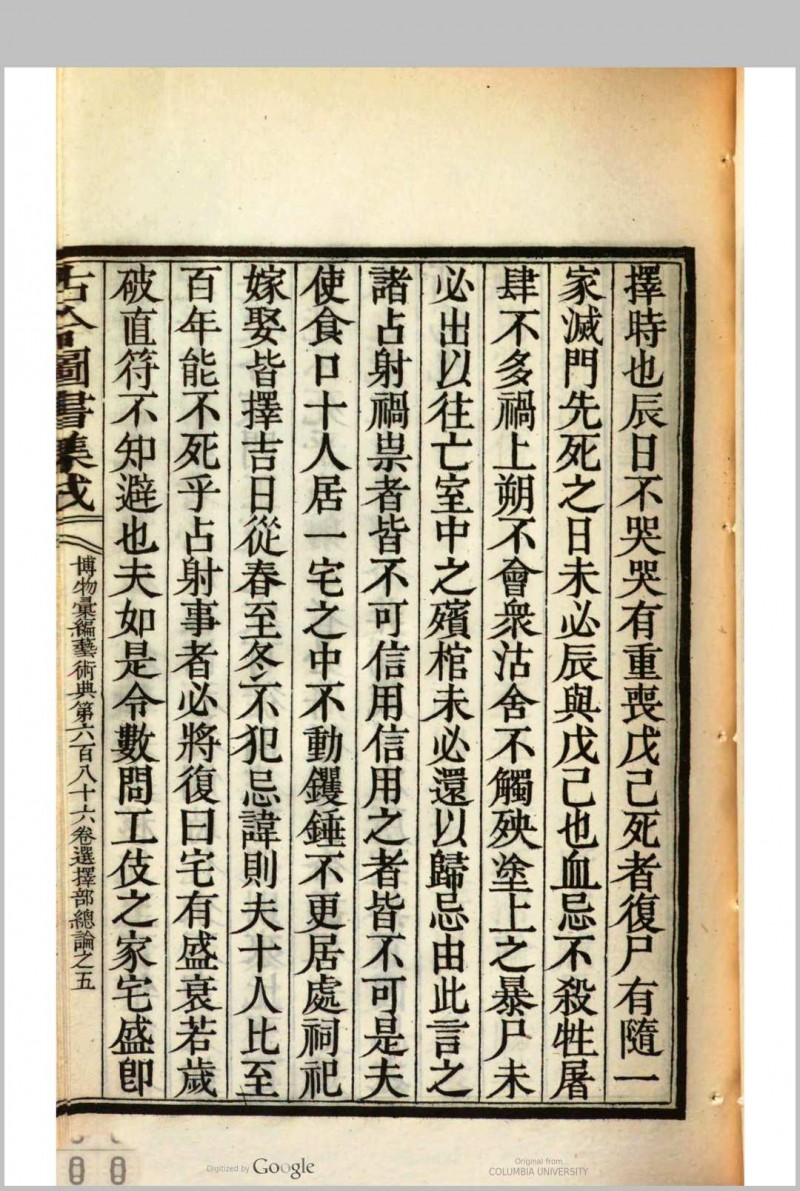 擇時也辰日不哭哭有重喪戊己死者復尸有隨一
家滅門先死之日未必辰與戊己也血忌不殺牲屠
肆不多禍上朔不會衆沽舍不觸殃塗上之暴尸未
必出以往亡室中之殯棺未必還以歸忌由此言之
諸占射禍祟者皆不可信用信用之者皆不可是夫
使食口十人居一宅之中不動钁錘不更居處祠祀
嫁娶皆擇吉日從春至冬不犯忌諱則夫十人比至
百年能不死乎占射事者必將復曰宅有盛衰若歲
破直符不知避也夫如是令數問工伎之家宅盛卽
古今圖書集成
博物彙編藝術典第六百八十六卷選擇部總論之五
Digitized by Google
Original from
COLUMBIA UNIVERSITY